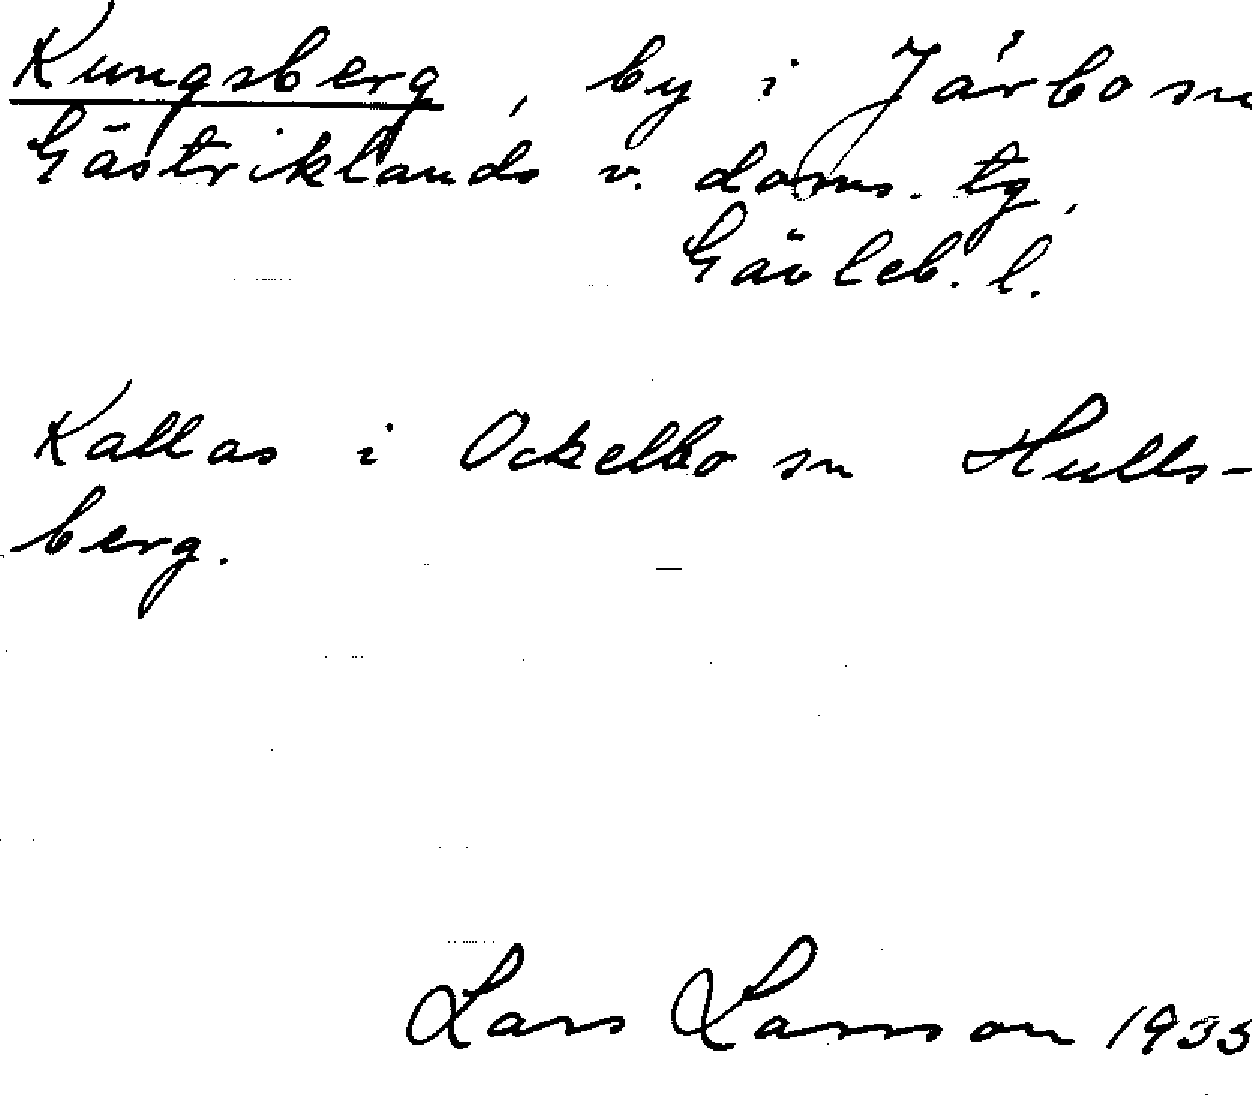 Kungsberg, by i Järbo sn
Gästriklands v. doms. tg,
Gävleb. l.
Kallas i Ockelbo sn Hulls-
berg.
Lars Larsson 1933